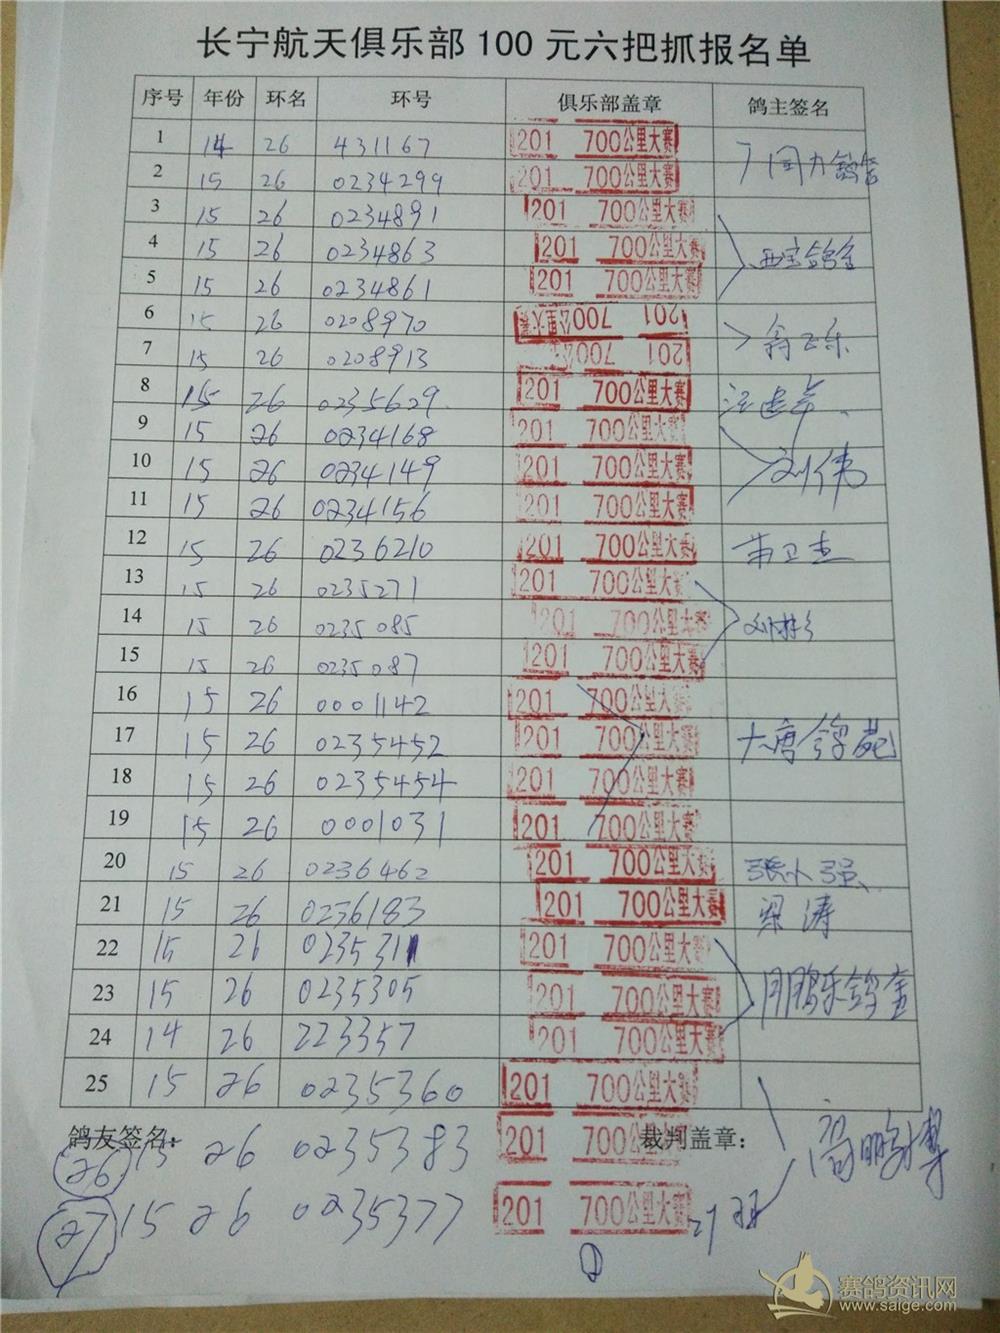 长宁航天俱乐部100元六把抓报名单
序号 年份 环名 环号 俱乐部盖章 鸽主签名
1 14 26 431167 201 700公里大赛
2 15 26 0234299 201 700公里大赛
3 15 26 0234891 201 700公里大赛
4 15 26 0234863 201 700公里大赛
5 15 26 0234861 201 700公里大赛
6 15 26 0208970 201 700公里大赛
7 15 26 0208913 201 700公
8 15 26 0235629 201 700公里大赛
9 15 26 0234168 201 700公里大赛
10 15 26 0234149 201 700公里大赛 刘伟
11 15 26 0234156 201 700公里大赛
12 15 26 0236210 201 700公里大赛
13 15 26 0235271 201 700公里大赛
14 15 26 0235085 201 700公里大赛
15 15 26 0235087 201 700公里大赛
16 15 26 0001142 201 700公里大赛
17 15 26 0235452 201 700公里大赛 大唐鸽苑
18 15 26 0235454 201 700公里大赛
19 15 26 0001031 201 700公里大赛
20 15 26 0236462 201 700公里大赛 张小强
21 15 26 0236183 201 700公里大赛 梁涛
22 15 26 0235311 201 700公里大赛
23 15 26 0235305 201 700公里大赛
24 14 26 223357 201 700公里大赛
25 15 26 0235360 201 700公里大赛
鸽友签名: 裁判盖章:
26 15 26 0235383 201 700公里大赛
27 15 26 0235377 201 700公里大赛 27羽
①
赛鸽资讯网
www.saige.com